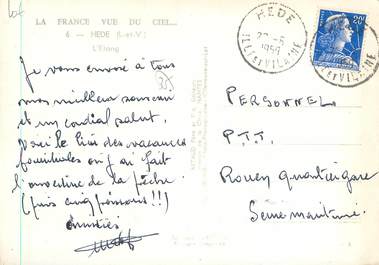 LA FRANCE VUE DU CIEL...
6 - HEDE (I.-et-V.)
L'Etang
Je vous envoie à tous
mes meilleurs souvenirs
et un cordial salut.
Ici le lieu des vacances
familiales où j'ai fait
l'ouverture de la pêche
(puis cinq poissons!!)
Amitiés
35
HEDE
1959
ILLE et VILAINE
20F
PERSONNEL
P.T.T.
Rouen quartier gare
Seine maritime.